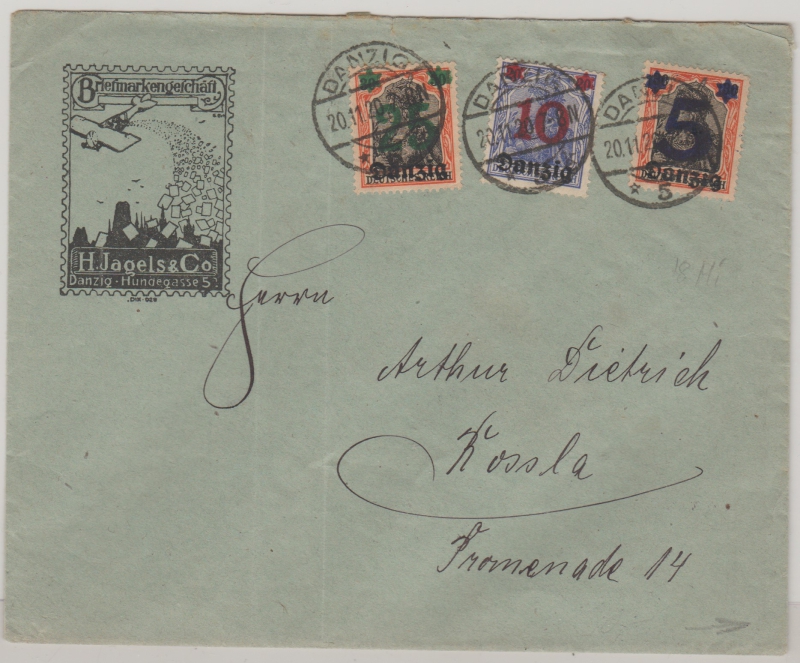 Briefmarkengeschäft
H. Jagels & Co
Danzig · Hundegasse 5
DANZIG
20.11.20
25
Danzig
DEUTSCHES REICH
DANZIG
20.11.20
10
Danzig
DANZIG
20.11.2
5
5
Danzig
Herrn
Arthur Dietrich
Rossla
Promenade 14